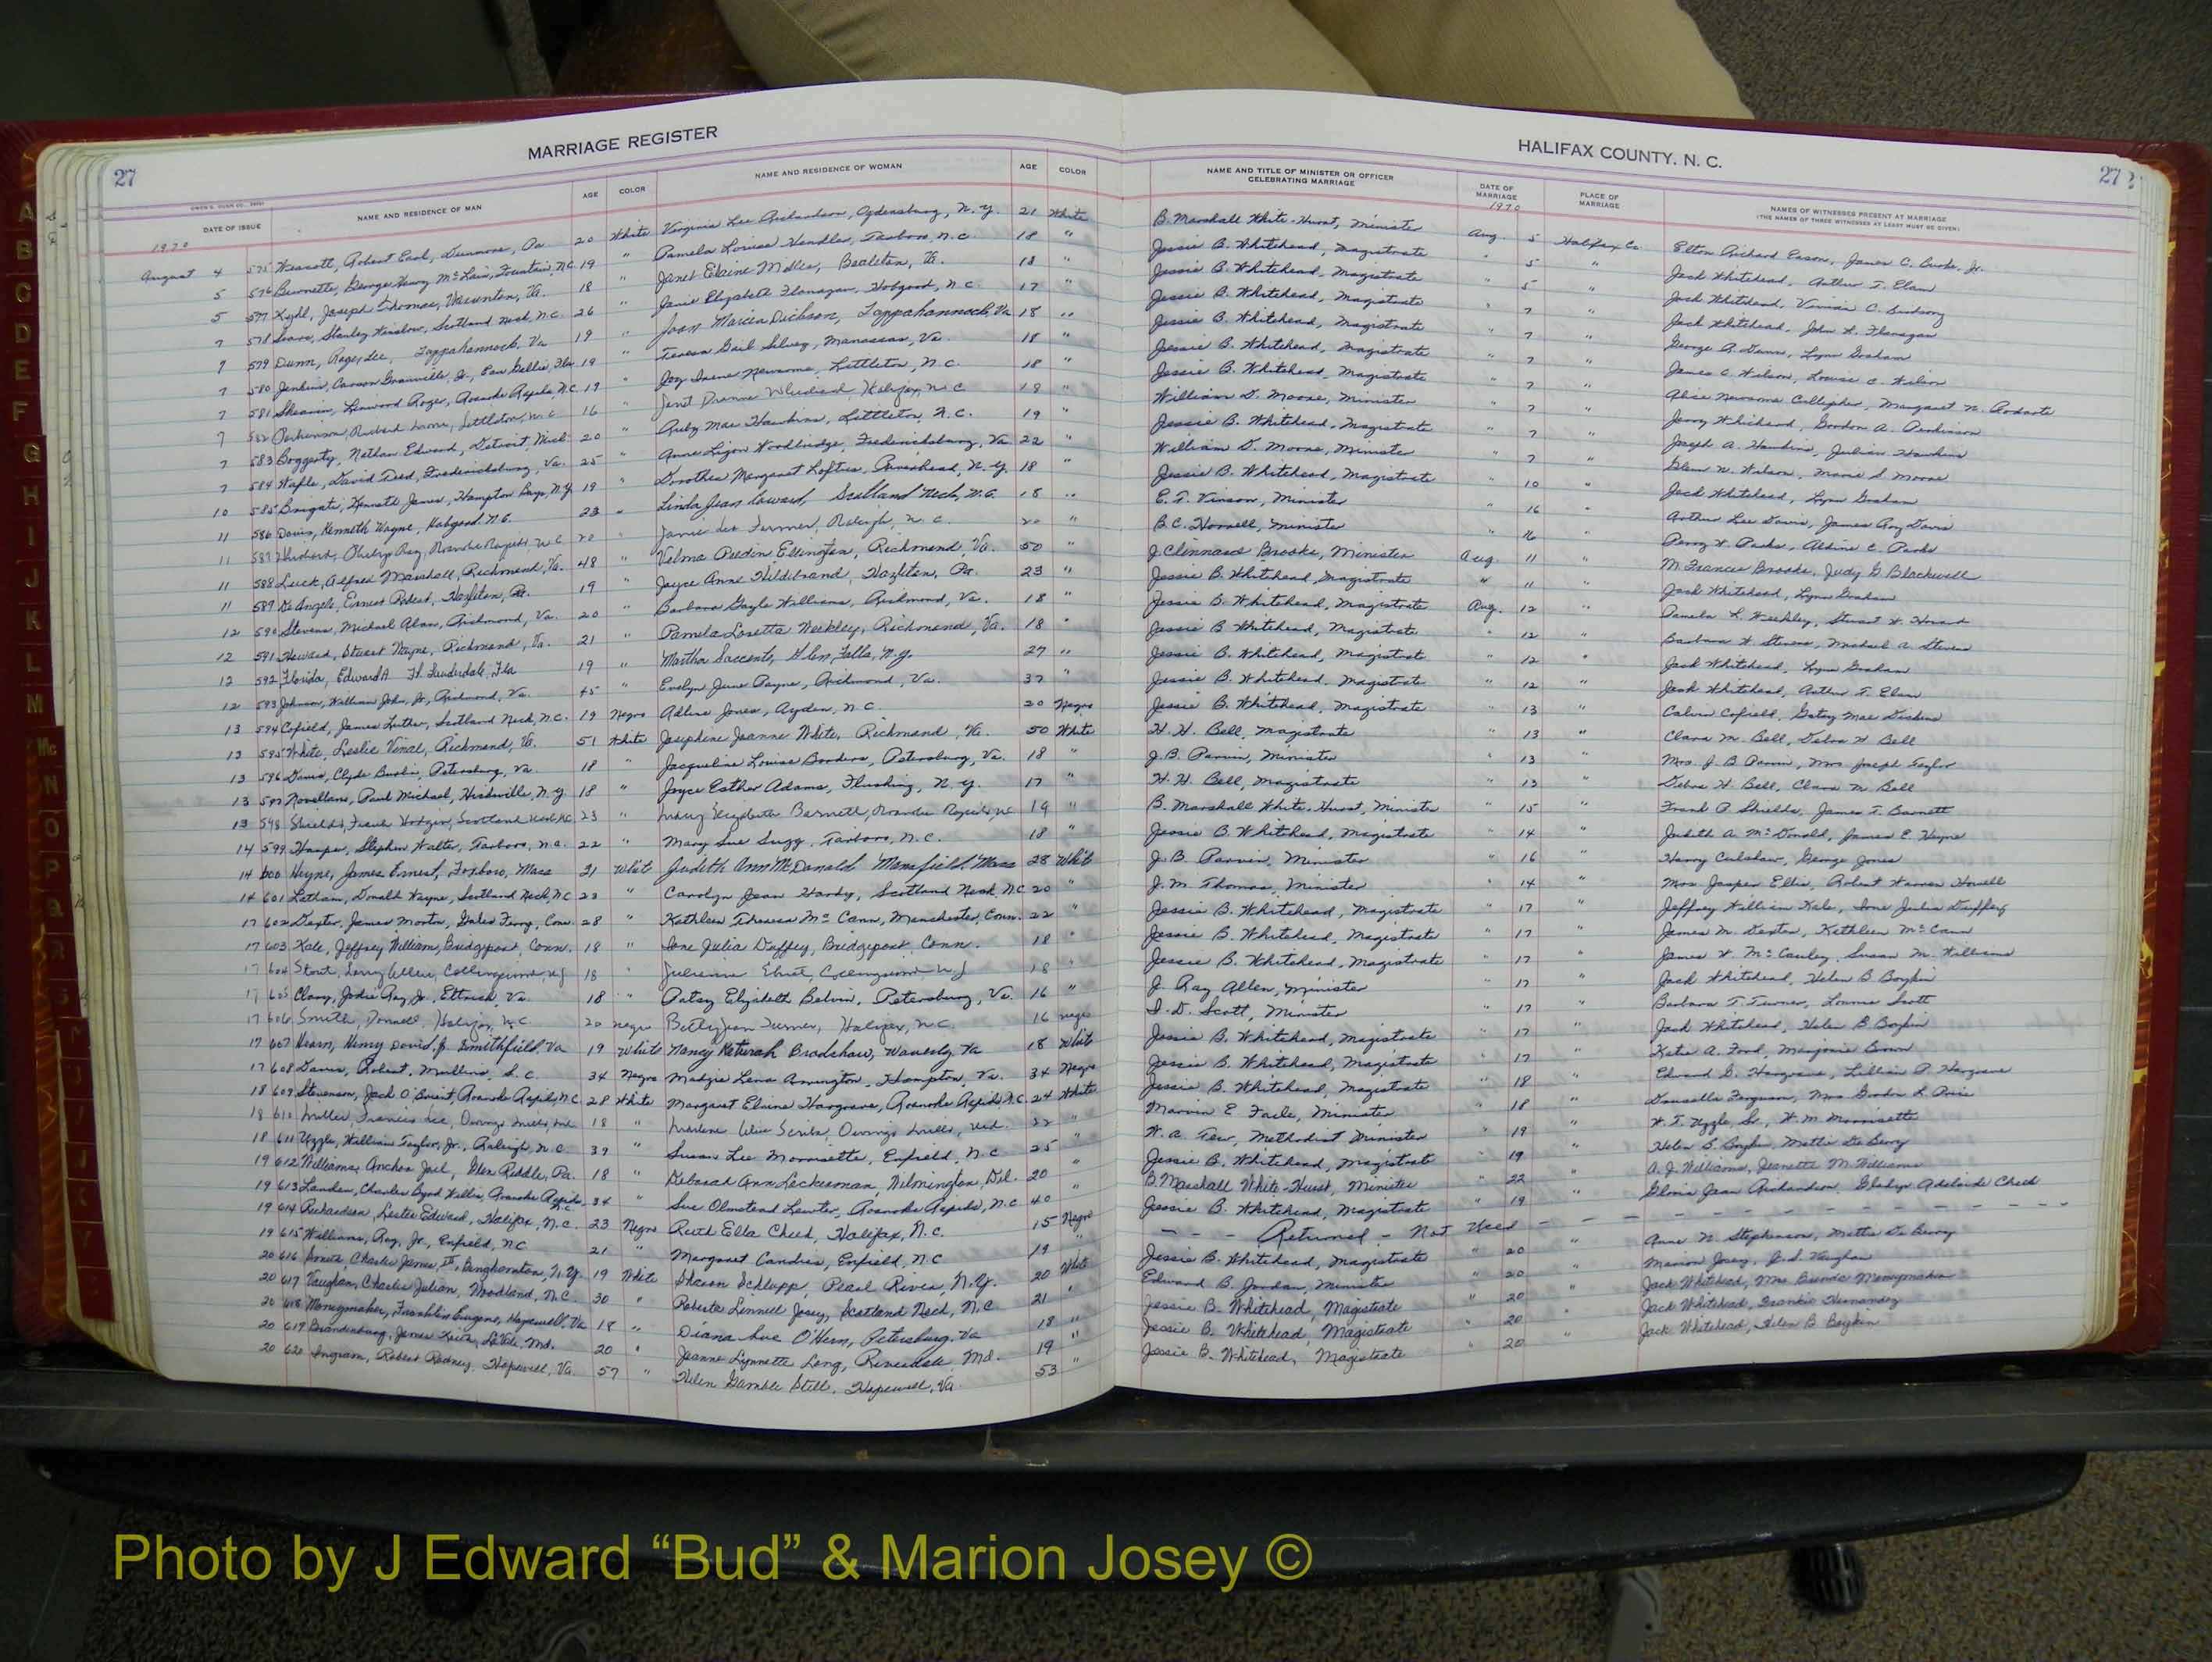 MARRIAGE REGISTER
HALIFAX COUNTY, N. C.
27
27
DATE OF ISSUE
NAME AND RESIDENCE OF MAN
AGE
COLOR
NAME AND RESIDENCE OF WOMAN
AGE
COLOR
NAME AND TITLE OF MINISTER OR OFFICER
CELEBRATING MARRIAGE
DATE OF
MARRIAGE
PLACE OF
MARRIAGE
NAMES OF WITNESSES PRESENT AT MARRIAGE
(THE NAMES OF THREE WITNESSES AT LEAST MUST BE GIVEN)
1970
1970
August 4 575 Robert Earl, Dunmore, Pa. 20 White Virginia Lee Richardson, Ogdensburg, N.Y. 21 White B. Marshall White-Hurst, Minister Aug. 5 Halifax Co. Elton Richard Eason, James C. Burke, Jr.
5 576 Burnette, George Henry McLain, Fountain, N.C. 19 " Pamela Louise Vandler, Tarboro, N.C. 18 " Jessie B. Whitehead, Magistrate " 5 " Jack Whitehead, Arthur T. Elam
5 577 Kyhl, Joseph Thomas, Va. 18 " Janet Elaine Miller, Bealeton, Va. 18 " Jessie B. Whitehead, Magistrate " 5 " Jack Whitehead, C.
7 578 Stanley Winslow, Scotland Neck, N.C. 26 " Janie Elizabeth Flanagan, Hobgood, N.C. 17 " Jessie B. Whitehead, Magistrate " 7 " Jack Whitehead, John H. Flanagan
7 579 Dunn, Roger Lee, Tappahannock, Va 19 " Joan Marcia Dickson, Tappahannock, Va 18 " Jessie B. Whitehead, Magistrate " 7 " George A. Dunn, Lynn Graham
7 580 Jenkins, Carson Granville, Jr., Eau Gallie, Fla 19 " Teresa Gail Silvey, Manassas, Va. 18 " Jessie B. Whitehead, Magistrate " 7 " James C. Wilson, Louise C. Wilson
7 581 Shearin, Linwood Roger, Roanoke Rapids, N.C. 19 " Joy Irene Newsome, Littleton, N.C. 18 " Jessie B. Whitehead, Magistrate " 7 " Alice Newsome Gallagher, Margaret N.
7 582 Perkinson, Littleton, N.C. 16 " Janet Dianne Whichard, Halifax, N.C. 18 " William D. Moore, Minister " 7 " Jerry Whichard, Gordon A. Perkinson
7 583 Boggerty, Nathan Edward, Detroit, Mich. 20 " Ruby Mae Hawkins, Littleton, N.C. 19 " Jessie B. Whitehead, Magistrate " 7 " Joseph A. Hawkins, Julian Hawkins
7 584 Waple, David Fred, Fredericksburg, Va. 25 " Anne Woodbridge, Fredericksburg, Va 22 " William D. Moore, Minister " 7 " Glenn W. Wilson, Marie S. Moore
10 585 Brigati, Kenneth James, Hampton Bays, N.Y. 19 " Dorothea Margaret Loftus, Riverhead, N.Y. 18 " Jessie B. Whitehead, Magistrate " 10 " Jack Whitehead, Lynn Graham
11 586 Davis, Kenneth Wayne, Hobgood N.C. 23 " Linda Jean Coward, Scotland Neck, N.C. 18 " E. T. Vinson, Minister " 16 " Arthur Lee Davis, James Roy Davis
11 587 Philip Ray, Roanoke Rapids, N.C. 20 " Janie Lee Farmer, Raleigh, N.C. 20 " B.C. Howell, Minister " 16 " Percy W. Parks, Aldine C. Parks
11 588 Luck, Alfred Marshall, Richmond, Va. 48 " Velma Ellington, Richmond, Va. 50 " J. Clennard Brooke, Minister Aug. 11 " M. Frances Brooke, Judy G. Blackwell
11 589 DeAngelo, Ernest Robert, Hazleton, Pa. 19 " Joyce Anne Hildebrand, Hazleton, Pa. 23 " Jessie B. Whitehead, Magistrate " 11 " Jack Whitehead, Lynn Graham
12 590 Stevens, Michael Alan, Richmond, Va. 20 " Barbara Gayle Williams, Richmond, Va. 18 " Jessie B. Whitehead, Magistrate Aug. 12 " Pamela L. Weekley, Stuart W. Howard
12 591 Howard, Stuart Wayne, Richmond, Va. 21 " Pamela Loretta Weekley, Richmond, Va. 18 " Jessie B Whitehead, Magistrate " 12 " Barbara W. Stevens, Michael A. Stevens
12 592 Florida, Edward A Ft. Lauderdale, Fla 19 " Martha Saccento, Glen Falls, N.Y. 27 " Jessie B. Whitehead, Magistrate " 12 " Jack Whitehead, Lynn Graham
12 593 Johnson, William John, Jr., Richmond, Va. 45 " Evelyn June Payne, Richmond, Va. 37 " Jessie B. Whitehead, Magistrate " 12 " Jack Whitehead, Arthur T. Elam
13 594 Cofield, James Luther, Scotland Neck, N.C. 19 Negro Adline Jones, Ayden, N.C. 20 Negro Jessie B. Whitehead, Magistrate " 13 " Calvin Cofield, Gatsy Mae Dickens
13 595 White, Leslie Vinal, Richmond, Va. 51 White Josephine Jeanne White, Richmond, Va. 50 White H. H. Bell, Magistrate " 13 " Clara M. Bell, Debra H Bell
13 596 Davis, Clyde Burlin, Petersburg, Va. 18 " Jacqueline Louise Borders, Petersburg, Va. 18 " J. B. Parvin, Minister " 13 " Mrs. J. B. Parvin, Mrs Joseph Taylor
13 597 Novellano, Paul Michael, Hicksville, N.Y. 18 " Joyce Esther Adams, Flushing, N.Y. 17 " H. H. Bell, Magistrate " 13 " Debra H Bell, Clara M Bell
13 598 Shields, Frank Hodges, Scotland Neck N.C. 23 " Mary Elizabeth Barnett, Roanoke Rapids, NC 19 " B. Marshall White-Hurst, Minister " 15 " Frank P. Shields, James T. Barnett
14 599 Harper, Stephen Walter, Tarboro, N.C. 22 " Mary Sue Sugg, Tarboro, N.C. 18 " Jessie B. Whitehead, Magistrate " 14 " Judith A. McDonald, James E. Heyne
14 600 Heyne, James Ernest, Foxboro, Mass 21 White Judith Ann McDonald Mansfield, Mass 28 White J. B. Parvin, Minister " 16 " Harry Culshaw, George Jones
14 601 Latham, Donald Wayne, Scotland Neck, NC 23 " Carolyn Jean Hardy, Scotland Neck, N.C. 20 " J. M. Thomas, Minister " 14 " Mrs. Jasper Ellis, Robert Warren Howell
17 602 Dexter, James Morton, Gales Ferry, Conn. 28 " Kathleen Theresa McCann, Manchester, Conn. 22 " Jessie B. Whitehead, Magistrate " 17 " Jeffrey William Kale, Ione Julia Duffey
17 603 Kale, Jeffrey William, Bridgeport, Conn. 18 " Ione Julia Duffey, Bridgeport Conn. 18 " Jessie B. Whitehead, Magistrate " 17 " James M. Dexter, Kathleen McCann
17 604 Stout, Larry Allen, NJ 18 " NJ 18 " Jessie B. Whitehead, Magistrate " 17 " James H. McCauley, Susan M. Williams
17 605 Clary, Jodie Ray, Jr., Ettrick, Va. 18 " Patsy Elizabeth Belvin, Petersburg, Va. 16 " J. Ray Allen, Minister " 17 " Jack Whitehead, Helen B Boykin
17 606 Smith, Donnell, Halifax, N.C. 20 Negro Betty Jean Turner, Halifax, N.C. 16 Negro I. D. Scott, Minister " 17 " Barbara T. Turner, Lonnie Scott
17 607 Hearn, Henry David, Jr. Smithfield, Va 19 White Nancy Keturah Bradshaw, Waverly, Va 18 White Jessie B. Whitehead, Magistrate " 17 " Jack Whitehead, Helen B Boykin
17 608 Davis, Robert, Mullins, S.C. 34 Negro Madgie Lena Arrington, Hampton, Va. 34 Negro Jessie B. Whitehead, Magistrate " 17 " Katie A. Ford, Marjorie Brown
18 609 Stevenson, Jack O'Brient, Roanoke Rapids, N.C. 28 White Margaret Elaine Hargrave, Roanoke Rapids, N.C. 24 White Jessie B. Whitehead, Magistrate " 18 " Edward G. Hargrave, Lillian P. Hargrave
18 610 Miller, Francis Lee, Owings Mills, Md. 18 " Marlene Scriba, Owings Mills, Md. 22 " Marvin E. Fa, Minister " 18 " Ferguson, Mrs Gordon L. Price
18 611 Uzzle, William Taylor, Jr., Raleigh, N.C. 39 " Susan Lee Morrisette, Enfield, N.C 25 " W. A. Tew, Methodist Minister " 19 " W. T. Uzzle, Sr., W. M. Morrisette
19 612 Williams, Anchor Joel, Glen Riddle, Pa. 18 " Deborah Ann Leckerman, Wilmington, Del. 20 " Jessie B. Whitehead, Magistrate " 19 " Helen B. Boykin, Mattie DeBerry
19 613 Landen, Charles Byrd Willis, Roanoke Rapids, N.C. 34 " Sue Olmstead Lewter, Roanoke Rapids, N.C 40 " B. Marshall White-Hurst, Minister " 22 " A. J. Williams, Jeanette M. Williams
19 614 Richardson, Lester Edward, Halifax, N.C. 23 Negro Ruth Ella Cheek, Halifax, N.C. 15 Negro Jessie B. Whitehead, Magistrate " 19 " Gloria Jean Richardson, Gladys Adelaide Cheek
19 615 Williams, Roy, Jr., Enfield, NC 21 " Margaret Candice, Enfield, N.C 19 " - - - Returned - Not Used - - - -
20 616 Charles James, IV, Binghamton, N.Y. 19 White Sharon Schlupp, Pearl River, N.Y. 20 White Jessie B. Whitehead, Magistrate " 20 " Anne N. Stephenson, Mattie DeBerry
20 617 Vaughan, Charles Julian, Woodland, N.C. 30 " Roberta Linnell Josey, Scotland Neck, N.C 21 " Edward B. Jordan, Minister " 20 " Marion Josey, J. S. Vaughan
20 618 Moneymaker, Franklin Eugene, Hopewell, Va 18 " Diana Sue O'Hern, Petersburg, Va 18 " Jessie B. Whitehead, Magistrate " 20 " Jack Whitehead, Mrs. Moneymaker
20 619 Brandenburg, James Keith, Md. 20 " Jeanne Lynnette Long, Riverdale, Md. 19 " Jessie B. Whitehead, Magistrate " 20 " Jack Whitehead, Frankie Hernandez
20 620 Ingram, Robert Rodney, Hopewell, Va. 57 " Helen Gamble Still, Hopewell, Va 53 " Jessie B. Whitehead, Magistrate " 20 " Jack Whitehead, Helen B Boykin
A
B
C
D
E
F
G
H
I
J
K
L
M
Mc
N
O
P
Q
R
S
Photo by J Edward “Bud” & Marion Josey ©